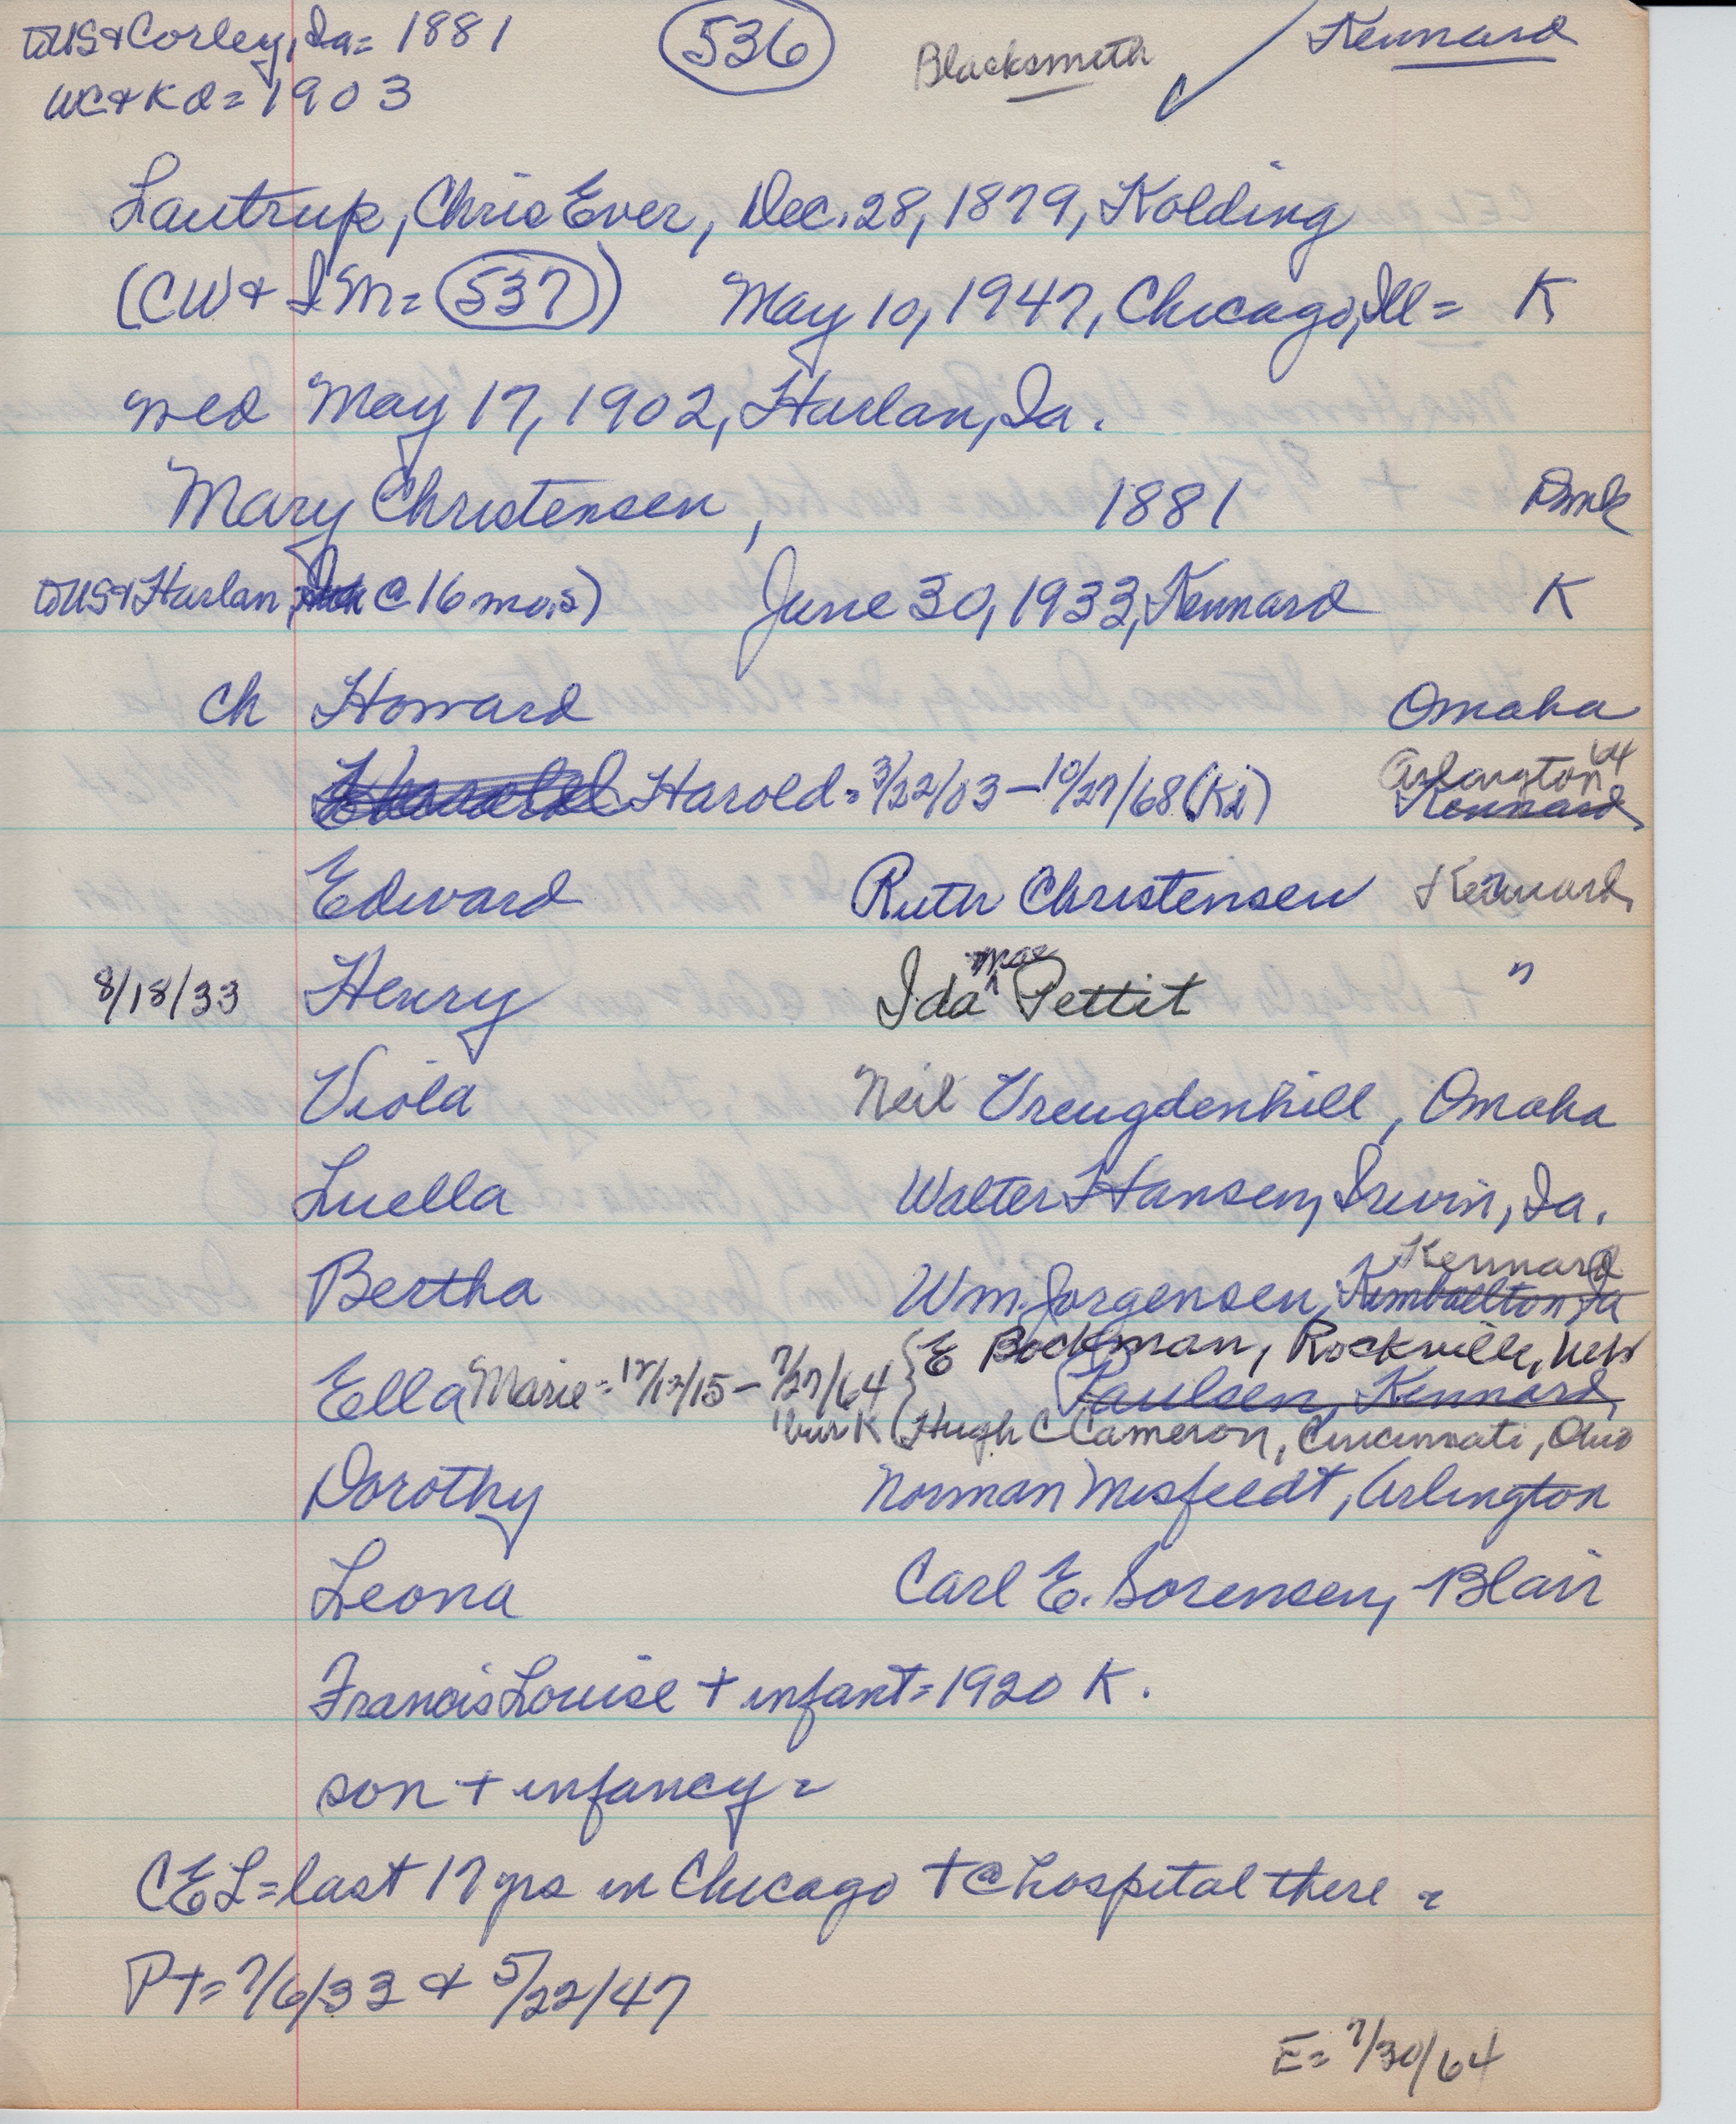 to US & Corley, Ia = 1881 (536) Blacksmith ✓ Kennard
WC & Kd = 1903
Lautrup, Chris Ever, Dec. 28, 1879, Kolding
(CW & IM = (537)) May 10, 1947, Chicago, Ill = K
med May 17, 1902, Harlan, Ia.
Mary Christensen, 1881 Dmk
to US & Harlan, @ 16 mo.s) June 30, 1933, Kennard K
ch Howard Omaha
Harold = 3/22/03 – 10/27/68 (Kd) Arlington 64 Kennard
Edward Ruth Christensen Kennard
8/18/33 Henry Ida Mae Pettit "
Viola Neil Vreugdenhill, Omaha
Luella Walter Hansen, Irwin, Ia.
Kennard
Bertha Wm. Jorgensen, Kimballton, Ia
E Bockman, Rockville, Neb
Ella Marie = 12/12/15 – 7/27/64 { Paulsen, Kennard
bur K (Hugh C Cameron, Cincinnati, Ohio
Dorothy Norman Misfeldt, Arlington
Leona Carl E. Sorensen, Blair
Francis Louise + infant = 1920 K.
son + infancy =
CEL = last 17 yrs in Chicago + @ hospital there =
PT = 7/6/33 & 5/22/47
E = 7/30/64